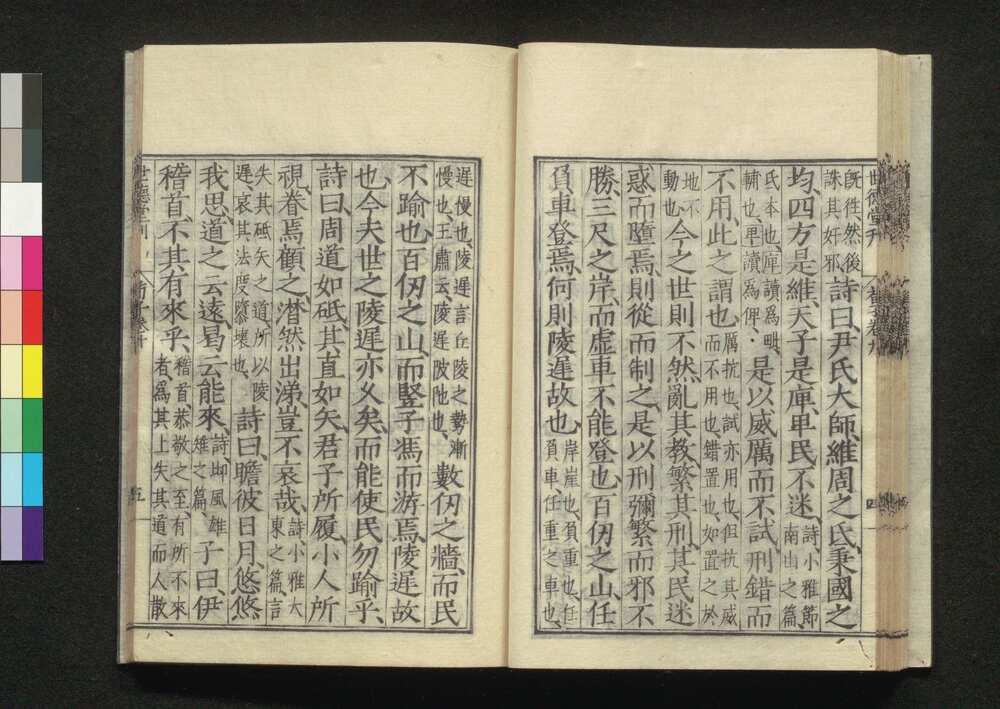 世德堂刊
四
旣往然後誅其奸邪詩曰尹氏大師、維周之氐、秉國之
均、四方是維、天子是庳、卑民不迷、詩小雅節南山之篇、
氐本也、庳讀爲毗、輔也、卑讀爲俾、是以威厲而不試、刑錯而
不用、此之謂也、厲抗也、試亦用也、但抗其威而不用也、錯置也、如置之於
地不動也、今之世則不然、亂其教、繁其刑、其民迷
惑而墮焉、則從而制之、是以刑彌繁而邪不
勝、三尺之岸、而虛車不能登也、百仞之山、任
負車登焉、何則陵遲故也、岸崖也、負重也、任負車任重之車也、
遲慢也、陵遲言丘陵之勢漸慢也、王肅云、陵遲陂阤也、數仞之牆、而民
不踰也、百仞之山、而豎子馮而游焉、陵遲故
也、今夫世之陵遲亦乆矣、而能使民勿踰乎、
詩曰、周道如砥、其直如矢、君子所履、小人所
視、眷焉顧之、潸然出涕、豈不哀哉、詩小雅大東之篇、言
失其砥矢之道、所以陵遲、哀其法度墮壞也、詩曰、瞻彼日月、悠悠
我思、道之云遠、曷云能來、詩邶風雄雉之篇、子曰、伊
稽首、不其有來乎、稽首恭敬之至、有所不來者、爲其上失其道而人散
世德堂刊
五